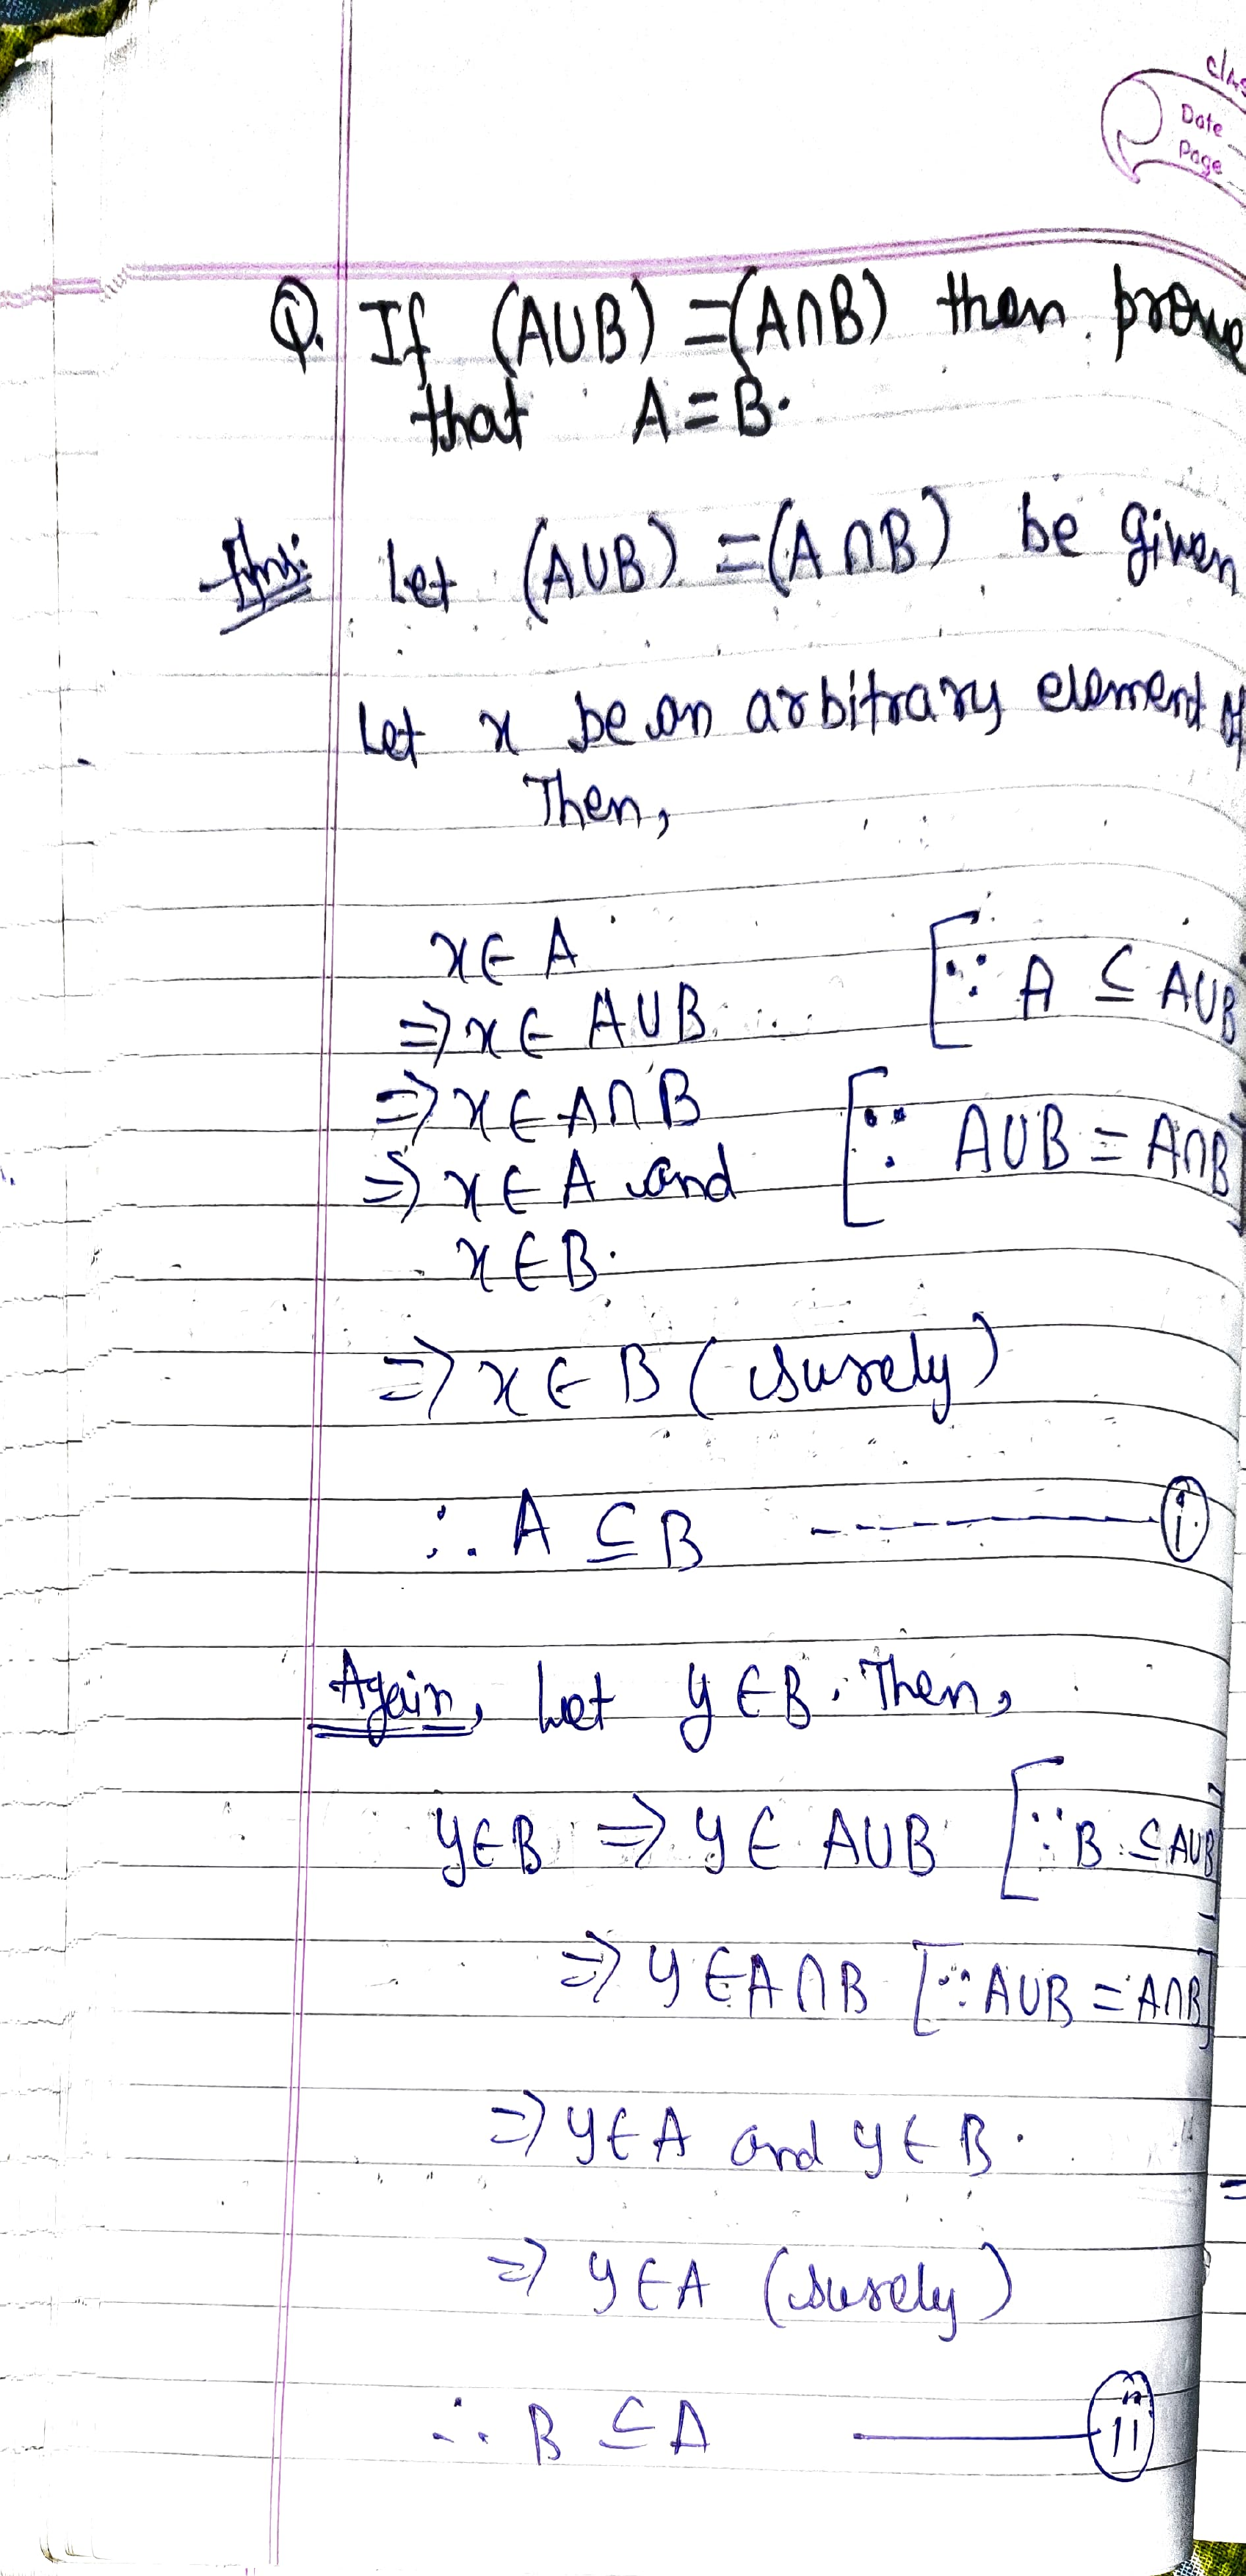 Date
Page
Q. If (A∪B) = (A∩B) then prove
that A = B.
Ans: Let (A∪B) = (A∩B) be given
Let x be an arbitrary element of
Then,
x ∈ A
⇒ x ∈ A∪B [∵ A ⊆ A∪B
⇒ x ∈ A∩B [∵ A∪B = A∩B]
⇒ x ∈ A and
x ∈ B.
⇒ x ∈ B (surely)
∴ A ⊆ B --------- (i)
Again, Let y ∈ B. Then,
y ∈ B ⇒ y ∈ A∪B [∵ B ⊆ A∪B]
⇒ y ∈ A∩B [∵ A∪B = A∩B]
⇒ y ∈ A and y ∈ B.
⇒ y ∈ A (surely)
∴ B ⊆ A ——— (ii)